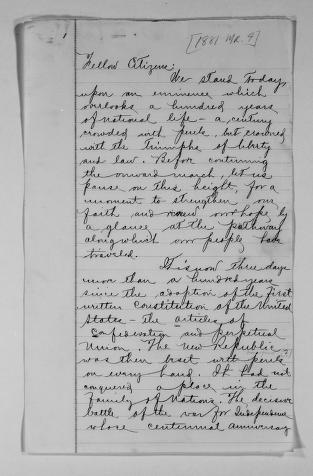 [1881 Mr. 4]
Fellow Citizens:
We stand today,
upon an eminence which
overlooks a hundred years
of national life – a century
crowded with perils, but crowned
with the triumphs of liberty
and law. Before continuing
the onward march, let us
pause on this height, for a
moment to strengthen our
faith and renew our hope by
a glance at the pathway
along which our people have
traveled.
It is now three days
more than a hundred years
since the adoption of the first
written constitution of the United
States – the articles of
confederation and perpetual
Union. The new Republic
was then beset with perils
on every hand. It had not
conquered a place in the
Family of Nations. The decisive
battle of the war for Independence
whose centennial anniversary